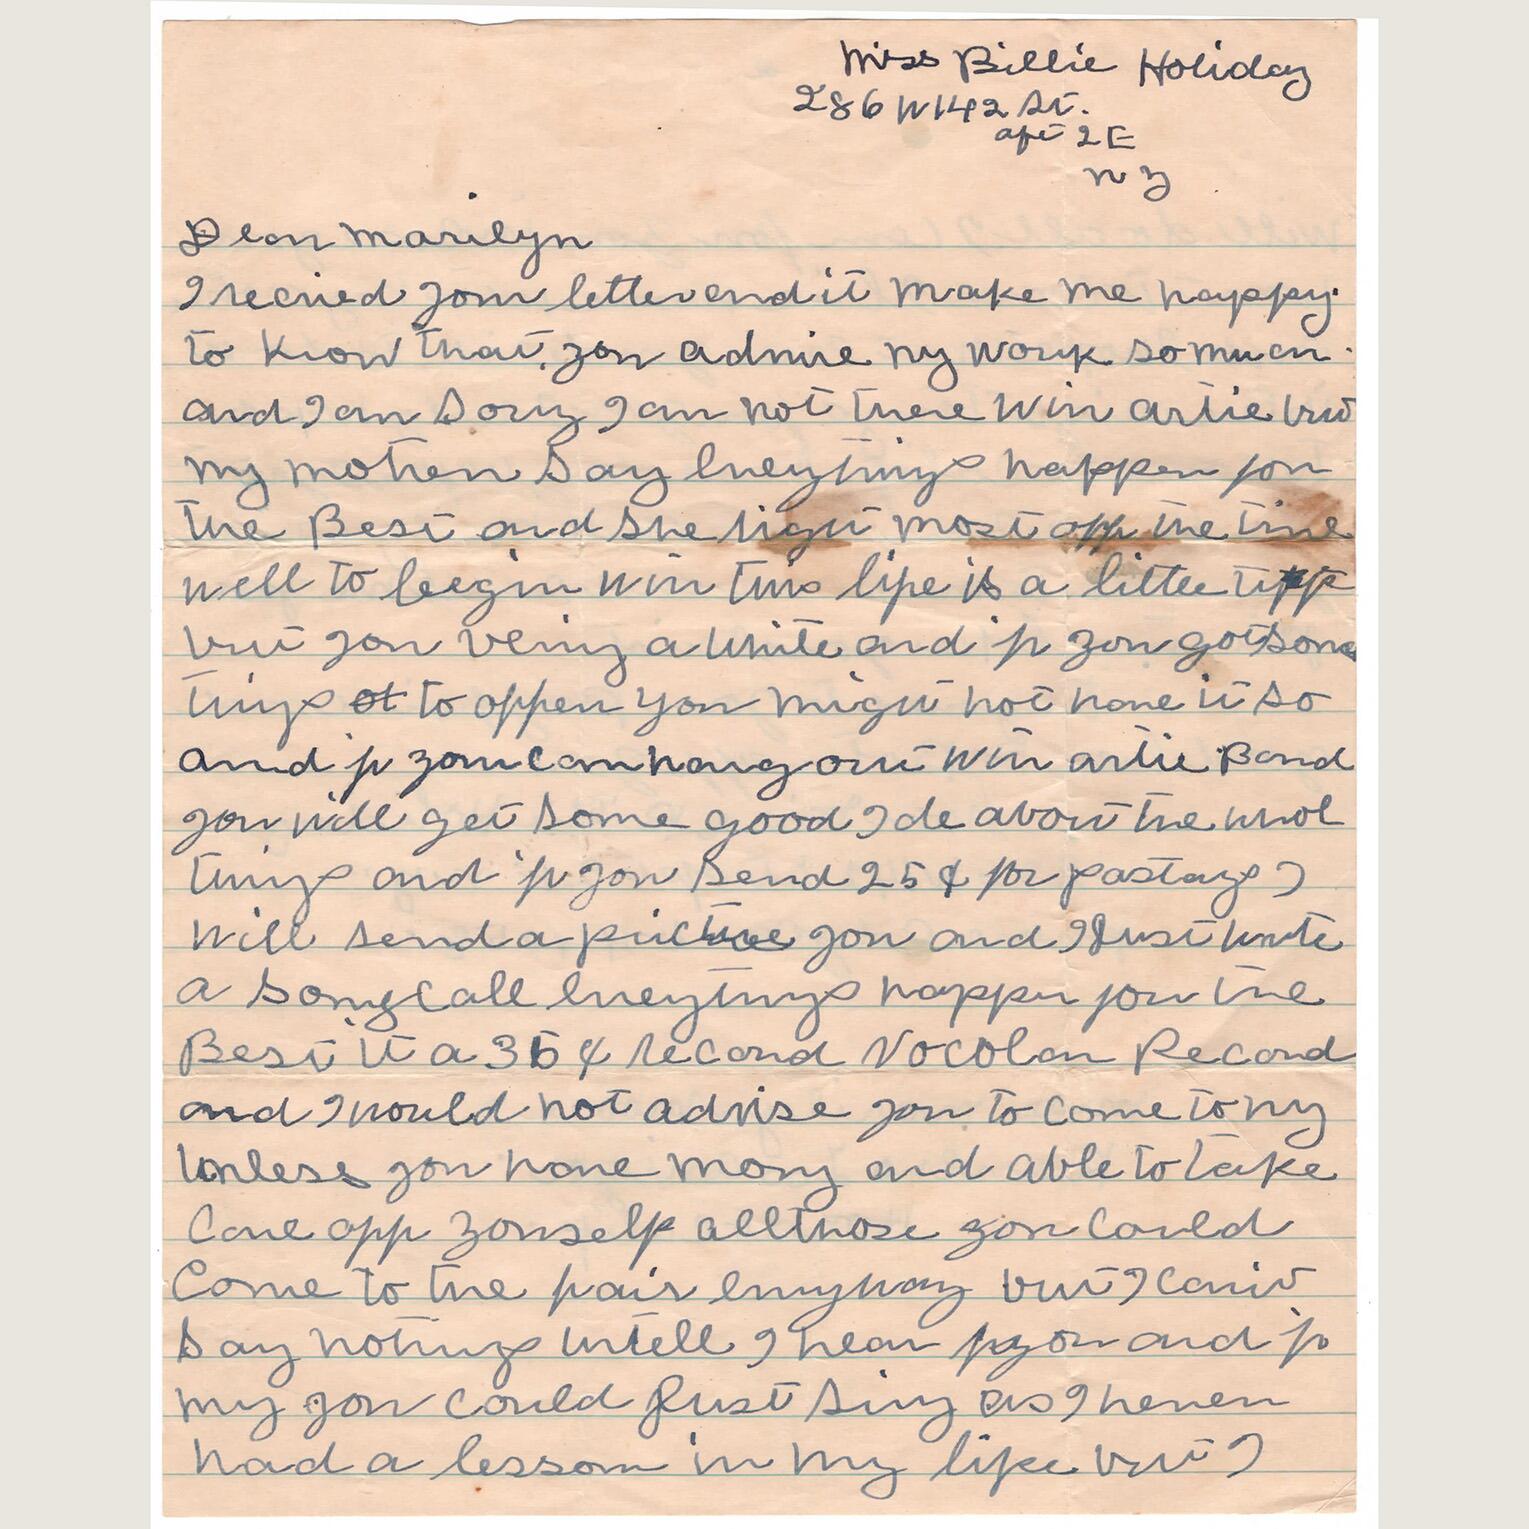 Miss Billie Holiday
286 W 142 St.
apt 2E
n y
Dear Marilyn
I recived your letter and it make me happy
to know that you admire my work so much.
and I am Sorry I am not there With artie but
my mother Say Everything happen for
the Best and She right most off the time
well to begin With this life is a little tuff
but you being a White and if you got Some
things ot to offer you might not have it so
and if you can hang out With artie Band
you will get some good Ide about the whol
things and if you send 25¢ for postage I
Will send a picture you and I Just wrote
a Song Call Everything happen for the
Best it a 35¢ record Vocolan Record
and I would not advise you to come to ny
Unless you have mony and able to take
Care off yourself allthose you Could
Come to the fair Enyway but I can't
Say nothing untell I hear fyou and if
my you could Just Sing as I never
had a lesson in my life but I